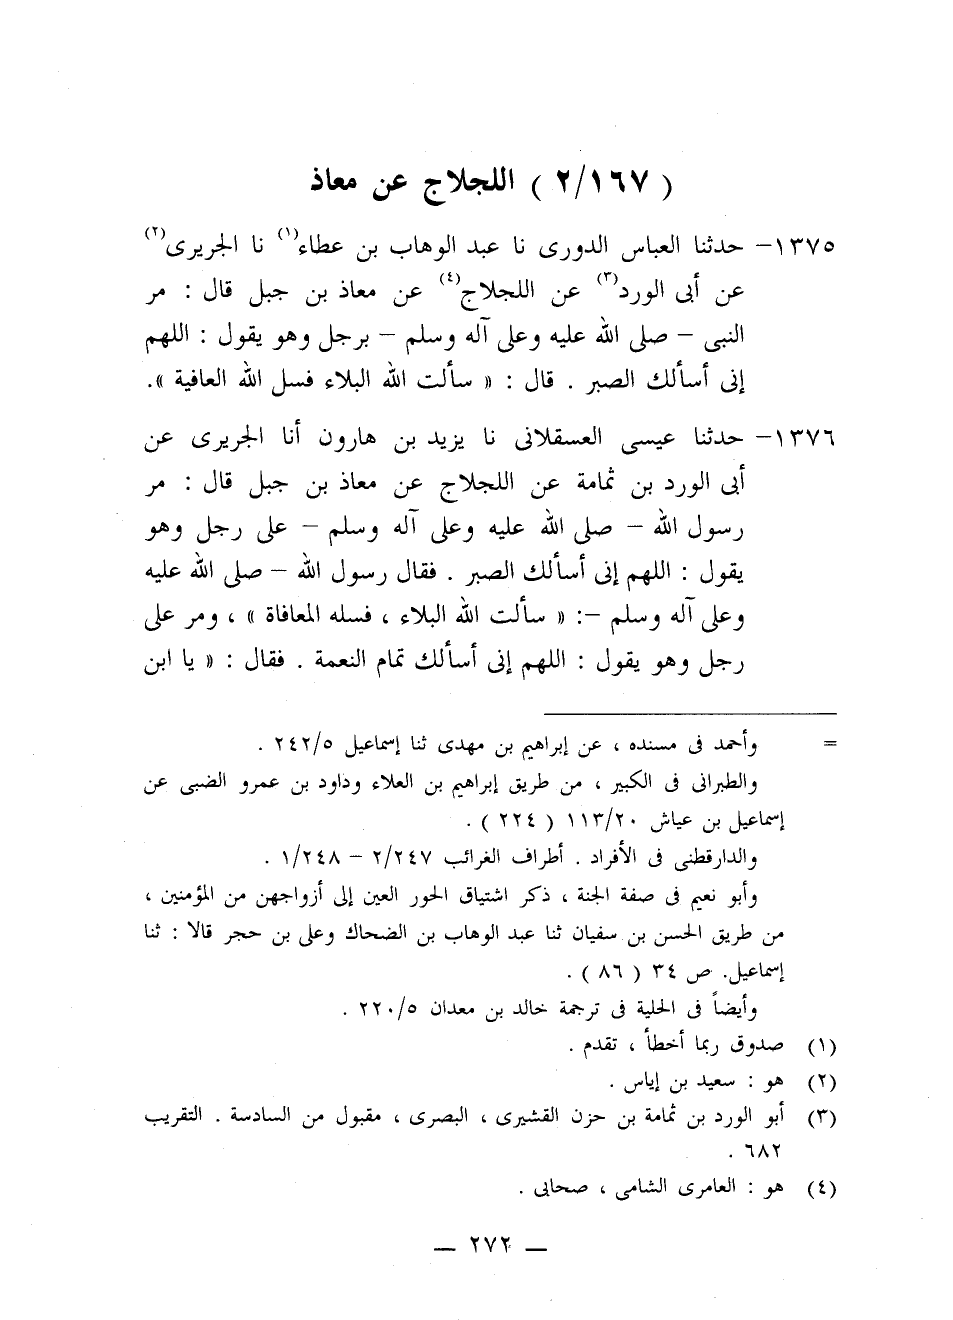 ( ٢/١٦٧ ) اللجلاج عن معاذ
١٣٧٥- حدثنا العباس الدورى نا عبد الوهاب بن عطاء(١) نا الجريرى(٢)
عن أبى الورد(٣) عن اللجلاج(٤) عن معاذ بن جبل قال : مر
النبى – صلى الله عليه وعلى آله وسلم – برجل وهو يقول : اللهم
إنى أسألك الصبر . قال : « سألت الله البلاء فسل الله العافية ».
١٣٧٦- حدثنا عيسى العسقلانى نا يزيد بن هارون أنا الجريرى عن
أبى الورد بن ثمامة عن اللجلاج عن معاذ بن جبل قال : مر
رسول الله – صلى الله عليه وعلى آله وسلم – على رجل وهو
يقول : اللهم إنى أسألك الصبر . فقال رسول الله – صلى الله عليه
وعلى آله وسلم –: « سألت الله البلاء ، فسله المعافاة » ، ومر على
رجل وهو يقول : اللهم إنى أسألك تمام النعمة . فقال : « يا ابن
= وأحمد فى مسنده ، عن إبراهيم بن مهدى ثنا إسماعيل ٢٤٢/٥ .
والطبرانى فى الكبير ، من طريق إبراهيم بن العلاء وداود بن عمرو الضبى عن
إسماعيل بن عياش ١١٣/٢٠ ( ٢٢٤ ) .
والدارقطنى فى الأفراد . أطراف الغرائب ٢/٢٤٧ – ١/٢٤٨ .
وأبو نعيم فى صفة الجنة ، ذكر اشتياق الحور العين إلى أزواجهن من المؤمنين ،
من طريق الحسن بن سفيان ثنا عبد الوهاب بن الضحاك وعلى بن حجر قالا : ثنا
إسماعيل. ص ٣٤ ( ٨٦ ) .
وأيضاً فى الحلية فى ترجمة خالد بن معدان ٢٢٠/٥ .
(١) صدوق ربما أخطأ ، تقدم .
(٢) هو : سعيد بن إياس .
(٣) أبو الورد بن ثمامة بن حزن القشيرى ، البصرى ، مقبول من السادسة . التقريب
٦٨٢ .
(٤) هو : العامرى الشامى ، صحابى .
– ٢٧٢ –